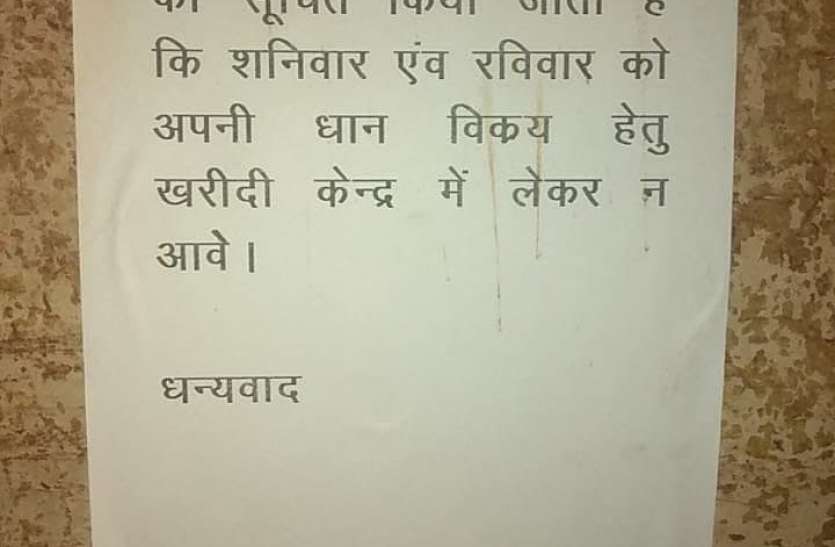 को सूचित किया जाता है
कि शनिवार एंव रविवार को
अपनी धान विक्रय हेतु
खरीदी केन्द्र में लेकर न
आवे।
धन्यवाद